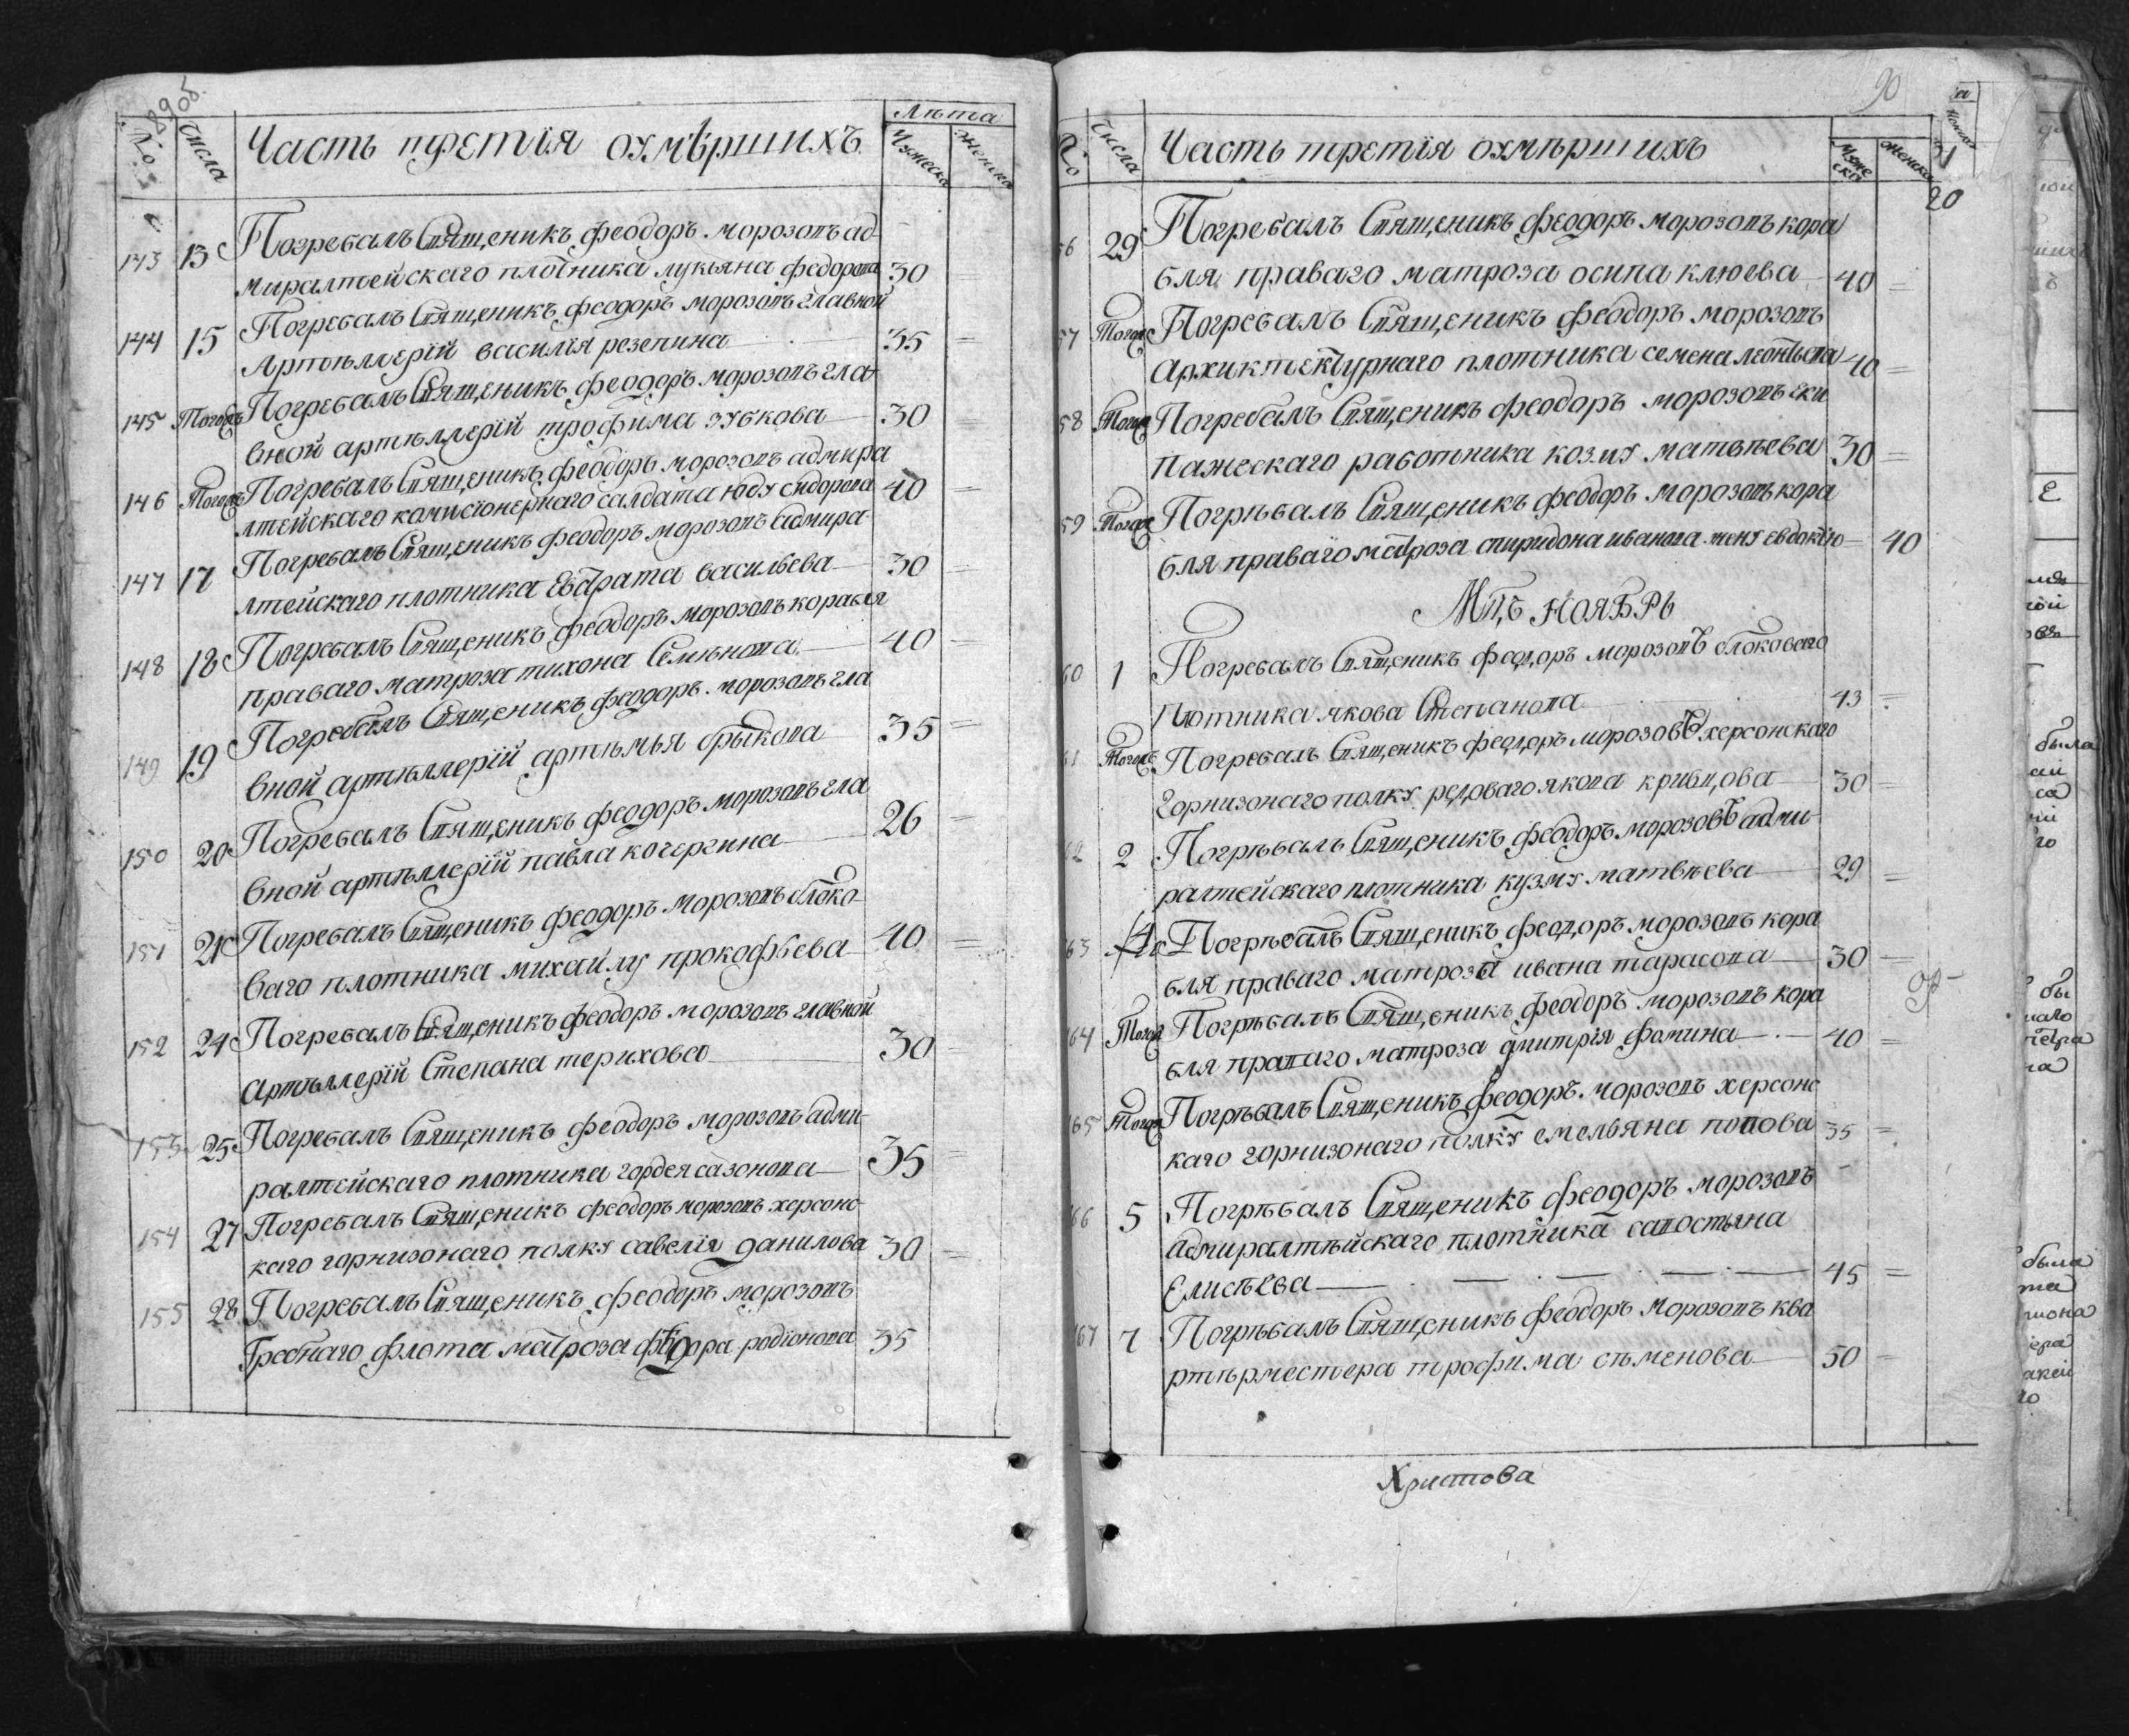 89 об
№ Числа Часть третїя оумѣршихъ Лѣта
Мужеска Женска
143 13 Погребалъ Священикъ феодоръ морозовъ ад
миралтейскаго плотника лукьяна федорова 30
144 15 Погребалъ Священикъ феодоръ морозовъ главной
Артѣллерїй василїя резепина 35 =
145 Тогожъ Погребалъ Священикъ феодоръ морозовъ гла
вной артѣллерїй трофима зубкова 30 =
146 Тогожъ Погребалъ Священикъ феодоръ морозовъ адмира
лтейскаго комисїонернаго салдата юду сидорова 40 =
147 17 Погребалъ Священикъ феодоръ морозовъ адмира
лтейскаго плотника Евстрата васильева 30 =
148 18 Погребалъ Священикъ феодоръ морозовъ корабля
праваго матроза тихона Семѣнова 40 =
149 19 Погребалъ Священикъ феодоръ морозовъ гла
вной артѣллерїй артѣмья брыкова 35 =
150 20 Погребалъ Священикъ феодоръ морозовъ гла
вной артѣллерїй павла кочергина 26 =
151 21 Погребалъ Священикъ феодоръ морозовъ блоко
ваго плотника михайлу прокофьева 40 =
152 24 Погребалъ Священикъ феодоръ морозовъ главной
Артѣллерїй Степана терихова 30 =
153 25 Погребалъ Священикъ феодоръ морозовъ адми
ралтейскаго плотника гордея сазонова 35 =
154 27 Погребалъ Священикъ феодоръ морозовъ херсонс
каго горнизонаго полку савелїя данилова 30 =
155 28 Погребалъ Священикъ феодоръ морозовъ
Гребнаго флота матроза федора родїонова 35
90
№ Числа Часть третїя оумѣршихъ Мужеска Женска
56 29 Погребалъ Священикъ феодоръ морозовъ кора
бля праваго матроза осипа клюева 40 =
57 Тогожъ Погребалъ Священикъ феодоръ морозовъ
Архиктектурнаго плотника семена леонтьева 40 =
58 Тогожъ Погребалъ Священикъ феодоръ морозовъ еки
пажескаго работника козму матвѣева 30 =
59 Тогожъ Погрѣбалъ Священикъ феодоръ морозовъ кора
бля праваго матроза спиридона иванова жену евдокїю 40
Мцъ НОЯБРЬ
60 1 Погребалъ Священикъ феодоръ морозовъ блоковаго
плотника якова Степанова 43 =
61 Тогожъ Погребалъ Священикъ феодоръ морозовъ херсонскаго
Горнизонаго полку редоваго якова кривцова 30 =
62 2 Погрѣбалъ Священикъ феодоръ морозовъ адми
ралтейскаго плотника кузму матвѣева 29 =
63 4 Погрѣбалъ Священикъ феодоръ морозовъ кора
бля праваго матроза ивана тарасова 30 =
64 Тогожъ Погрѣбалъ Священикъ феодоръ морозовъ кора
бля праваго матроза дмитрїя фомина 40 =
65 Тогожъ Погрѣбалъ Священикъ феодоръ морозовъ херсонс
каго горнизонаго полку емельяна попова 35 =
66 5 Погрѣбалъ Священикъ феодоръ морозовъ
адмиралтѣйскаго плотника савостьяна
Елисѣева 45 =
167 7 Погрѣбалъ Священикъ феодоръ морозовъ ква
ртѣрместера трофима сѣменова 50 =
Христова